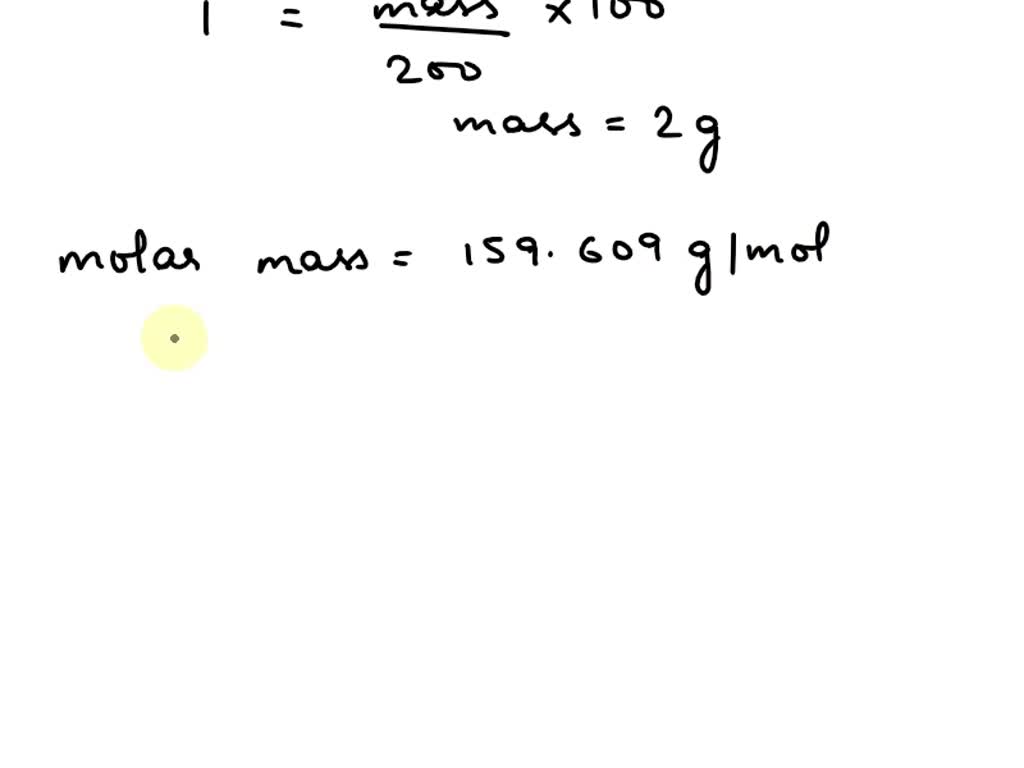 1 = mass/200 × 100
mass = 2 g
molar mass = 159.609 g/mol